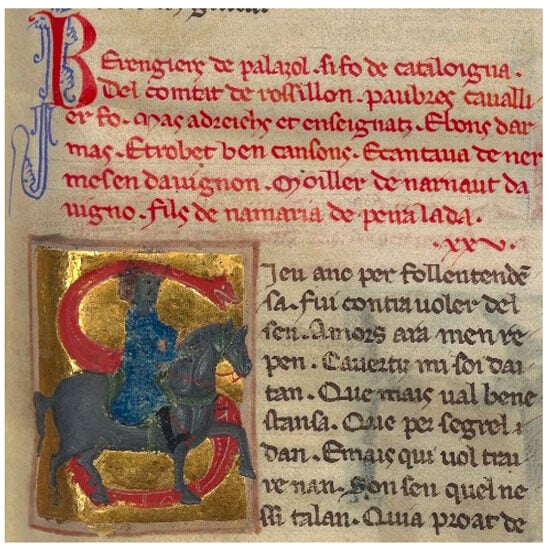 Berengiers de palazol. si fo de cataloigna.
Del comtat de rossillon. paubres cavalli
er fo. Mas adreichs et enseignatz. E bons dar
mas. E trobet ben cansons. E cantava de ner
mesen davignon. Moiller de narnaut da
vigno. fils de namaria de peira lada.
.xxv.
Sieu anc per fol lentendē
sa. fui contra voler del
sen. Amors ara men re
pen. Cavertz mi soi dai
tan. Que mais val bene
stansa. Que per segre
dan. E mais qui vol trai
re nan. Son sen quel ne
talan. Quia proat de